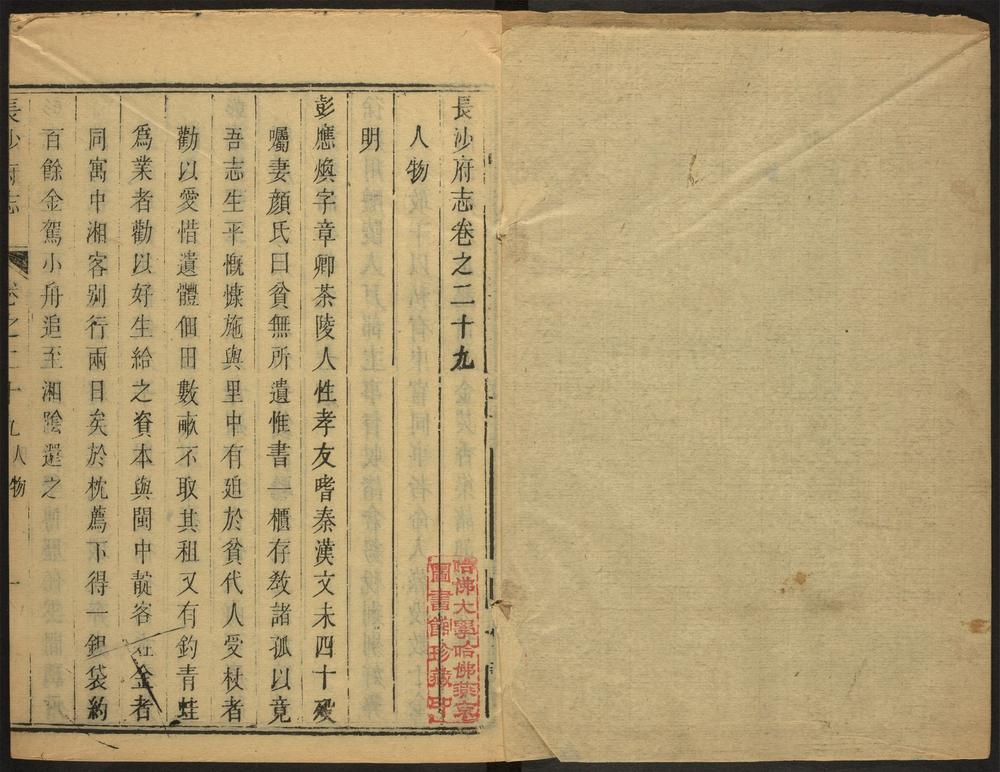 長沙府志卷之二十九
人物
明
彭應煥字章卿茶陵人性孝友嗜秦漢文未四十歿
囑妻顏氏曰貧無所遺惟書櫃存教諸孤以竟
吾志生平慨慷施與里中有廹於貧代人受杖者
勸以愛惜遺體佃田數畝不取其租又有釣青蛙
爲業者勸以好生給之資本與閩中靛客
金者
同寓中湘客別行兩日矣於枕薦下得一銀袋約
百餘金駕小舟追至湘陰還之
長沙府志
卷之二十九人物
一
哈佛大學哈佛燕京
圖書館珍藏印